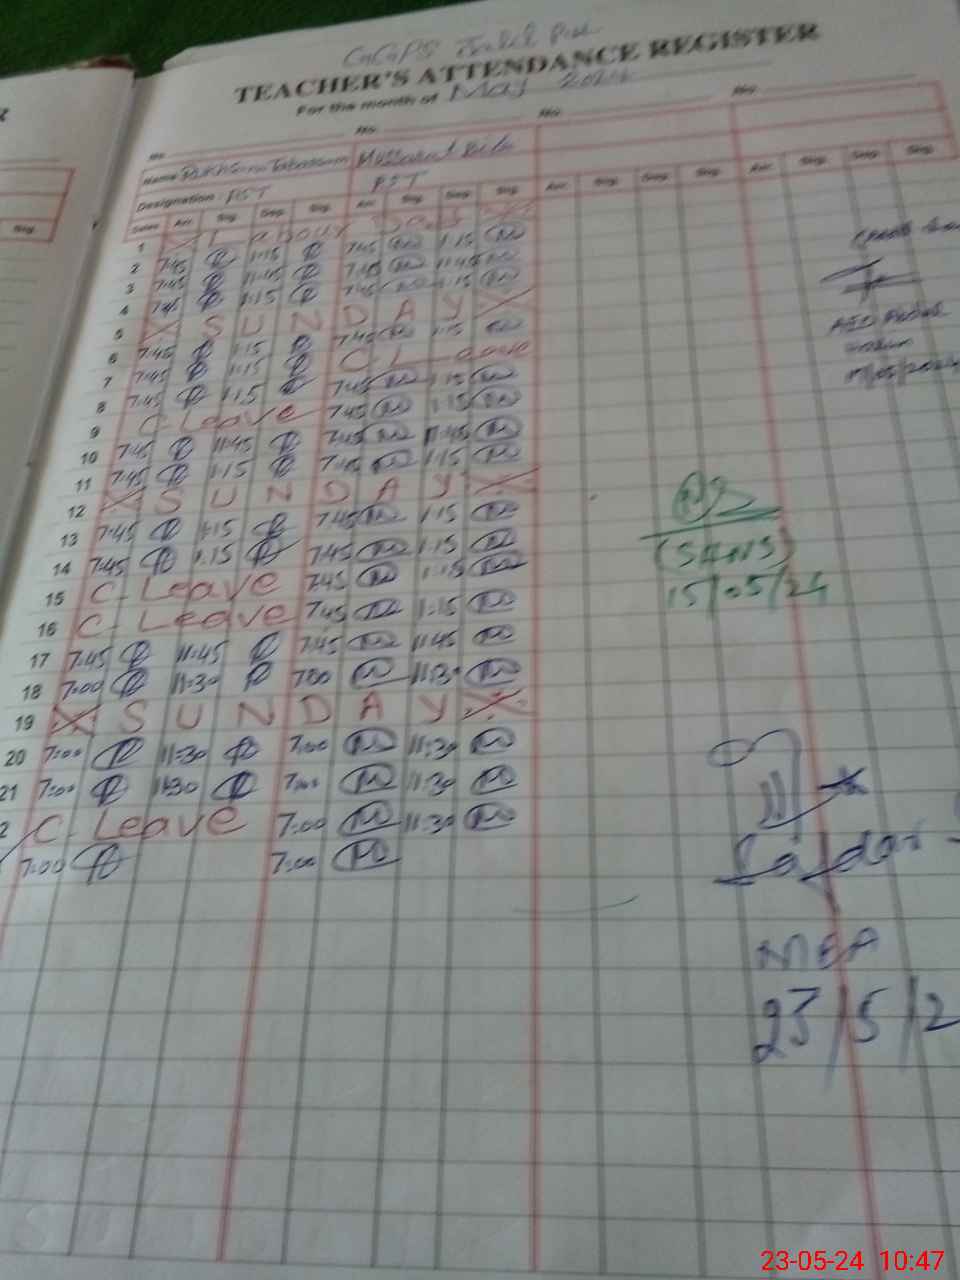 TEACHER'S ATTENDANCE REGISTER
For the month of May 2024
No. No. No. No.
Name Tabassum Mussarat Bibi
Designation : PST PST
Dates Arr. Sig. Dep. Sig. Arr. Sig. Dep. Sig. Arr. Sig. Dep. Sig. Arr. Sig. Dep. Sig.
1 Labour Day
2 7:45 1:15 7:45 1:15
3 7:45 11:45 7:45 11:45
4 7:45 1:15 7:45 1:15
5 SUNDAY
6 7:45 1:15 7:45 1:15
7 7:45 1:15 C Leave
8 7:45 1:15 7:45 1:15
9 C Leave 7:45 1:15
10 7:45 11:45 7:45 11:45
11 7:45 1:15 7:45 1:15
12 SUNDAY
13 7:45 1:15 7:45 1:15
14 7:45 1:15 7:45 1:15
15 C Leave 7:45 1:15
16 C Leave 7:45 1:15
17 7:45 11:45 7:45 11:45
18 7:00 11:30 7:00 11:30
19 SUNDAY
20 7:00 11:30 7:00 11:30
21 7:00 11:30 7:00 11:30
2 C Leave 7:00 11:30
7:00 7:00
15/05/24
MEA
23/5/2
23-05-24 10:47